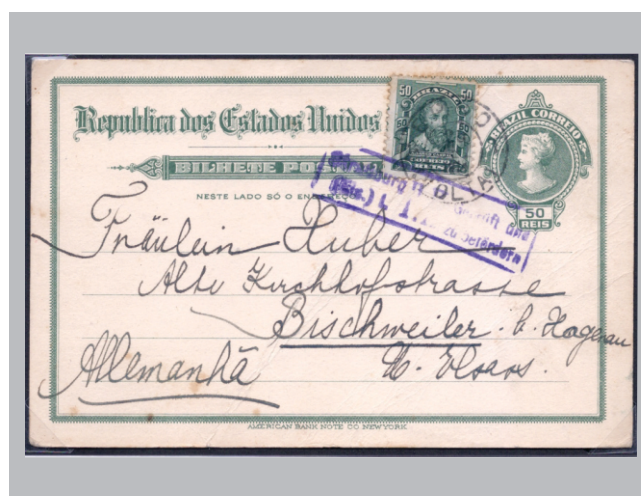 Republica dos Estados Unidos
BILHETE POSTAL
NESTE LADO SÓ O ENDEREÇO
50 BRAZIL 50
REIS
BRAZIL CORREIO
50
REIS
Strassburg
(Els.)
zu befördern
Fräulein Huber
Alte Kirchhofstrasse
Bischweiler b. Hagenau
Allemanhã
Elsass.
AMERICAN BANK NOTE CO. NEW YORK